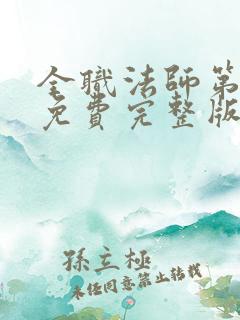 全職法師第
免費完整版
孫立極
未經同意禁止轉載